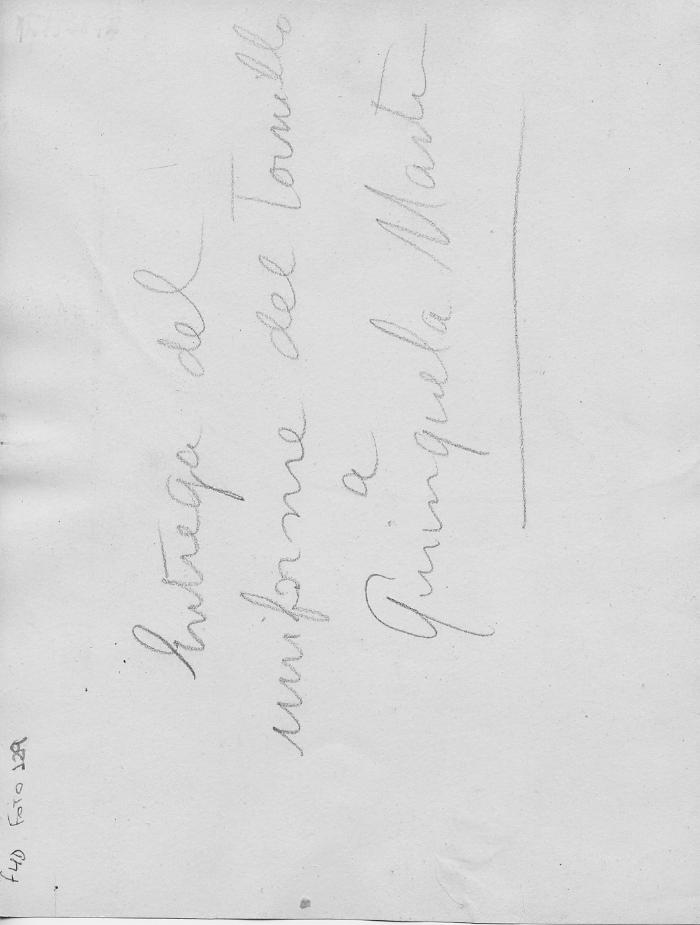 Entrega del
uniforme del Tornillo
a
Quinquela Martin
F4D FOTO 129